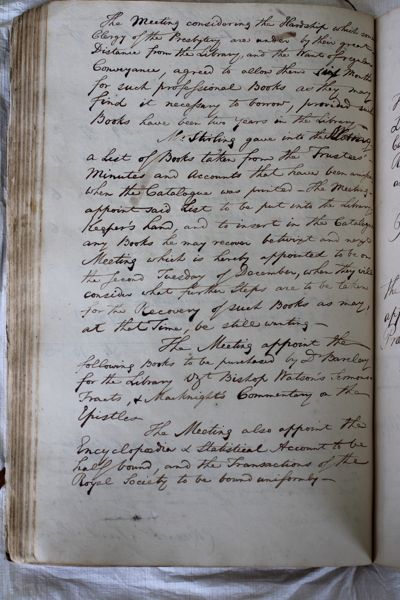 The Meeting considering the Hardship which some
Clergy of the Presbytery are under by their great
Distance from the Library, and the Want of regular
Conveyance, agreed to allow them six Months
for such professional Books as they may
find it necessary to borrow, provided such
Books have been two years in the Library.
Mr Stirling gave into the Meeting
a List of Books taken from the Trustees'
Minutes and Accounts that have been
when the Catalogue was printed — The Meeting
appoint said List to be put into the Library
Keeper's hand, and to insert in the Catalogue
any Books he may recover betwixt and next
Meeting which is hereby appointed to be on
the second Tuesday of December, when they will
consider what further Steps are to be taken
for the Recovery of such Books as may,
at that Time, be still wanting —
The Meeting appoint the
following Books to be purchased by Dr Barclay
for the Library Vizt Bishop Watson's Sermons
Tracts, & Macknight's Commentary on the
Epistles
The Meeting also appoint the
Encyclopædia & Statistical Account to be
half bound, and the Transactions of the
Royal Society to be bound uniformly —